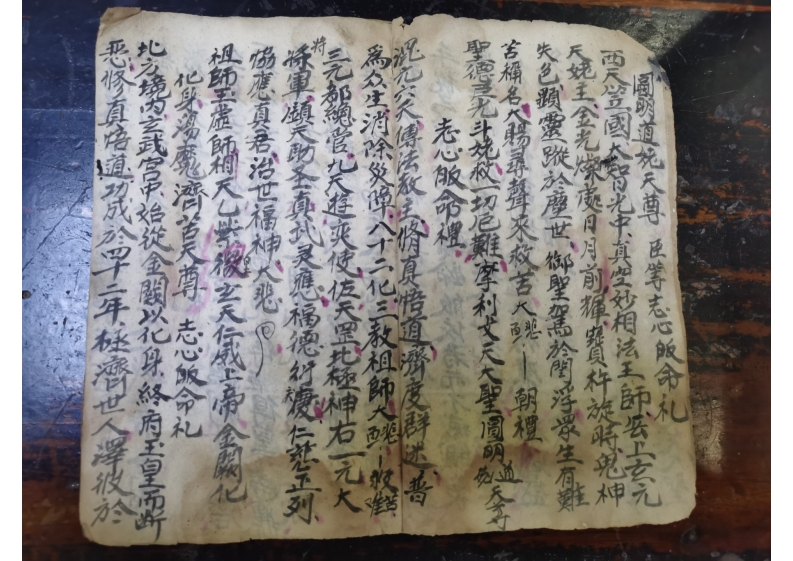 圓明道姥天尊 臣等志心皈命礼
西天竺國大智光中真空妙相法王師無上玄元
天姥王金光爍處日月前輝寶杵旋時鬼神
失色顕靈蹤於塵世御聖駕於閻浮眾生有難
若稱名大賜尋聲來救苦大悲 朝禮
聖德巨光斗姥救一切厄難摩利支天大聖圓明道姥天尊
志心皈命禮
混元六天傳法教主脩真悟道濟度群迷普
為众生消除災障八十二化三教祖師大悲 救難
三元都總管九天遊奕使佐天罡北極神右一元大
將軍鎮天助圣真武灵應福德衍慶仁慈正列
協應真君治世福神大悲
祖師玉虛師相天乙 復玄天仁威上帝金闕化
化身蕩魔濟苦天尊 志心皈命礼
北方境內玄武宮中始從金闕以化身終府玉皇而断
惡修真悟道功成於四十二年極濟世人澤彼於